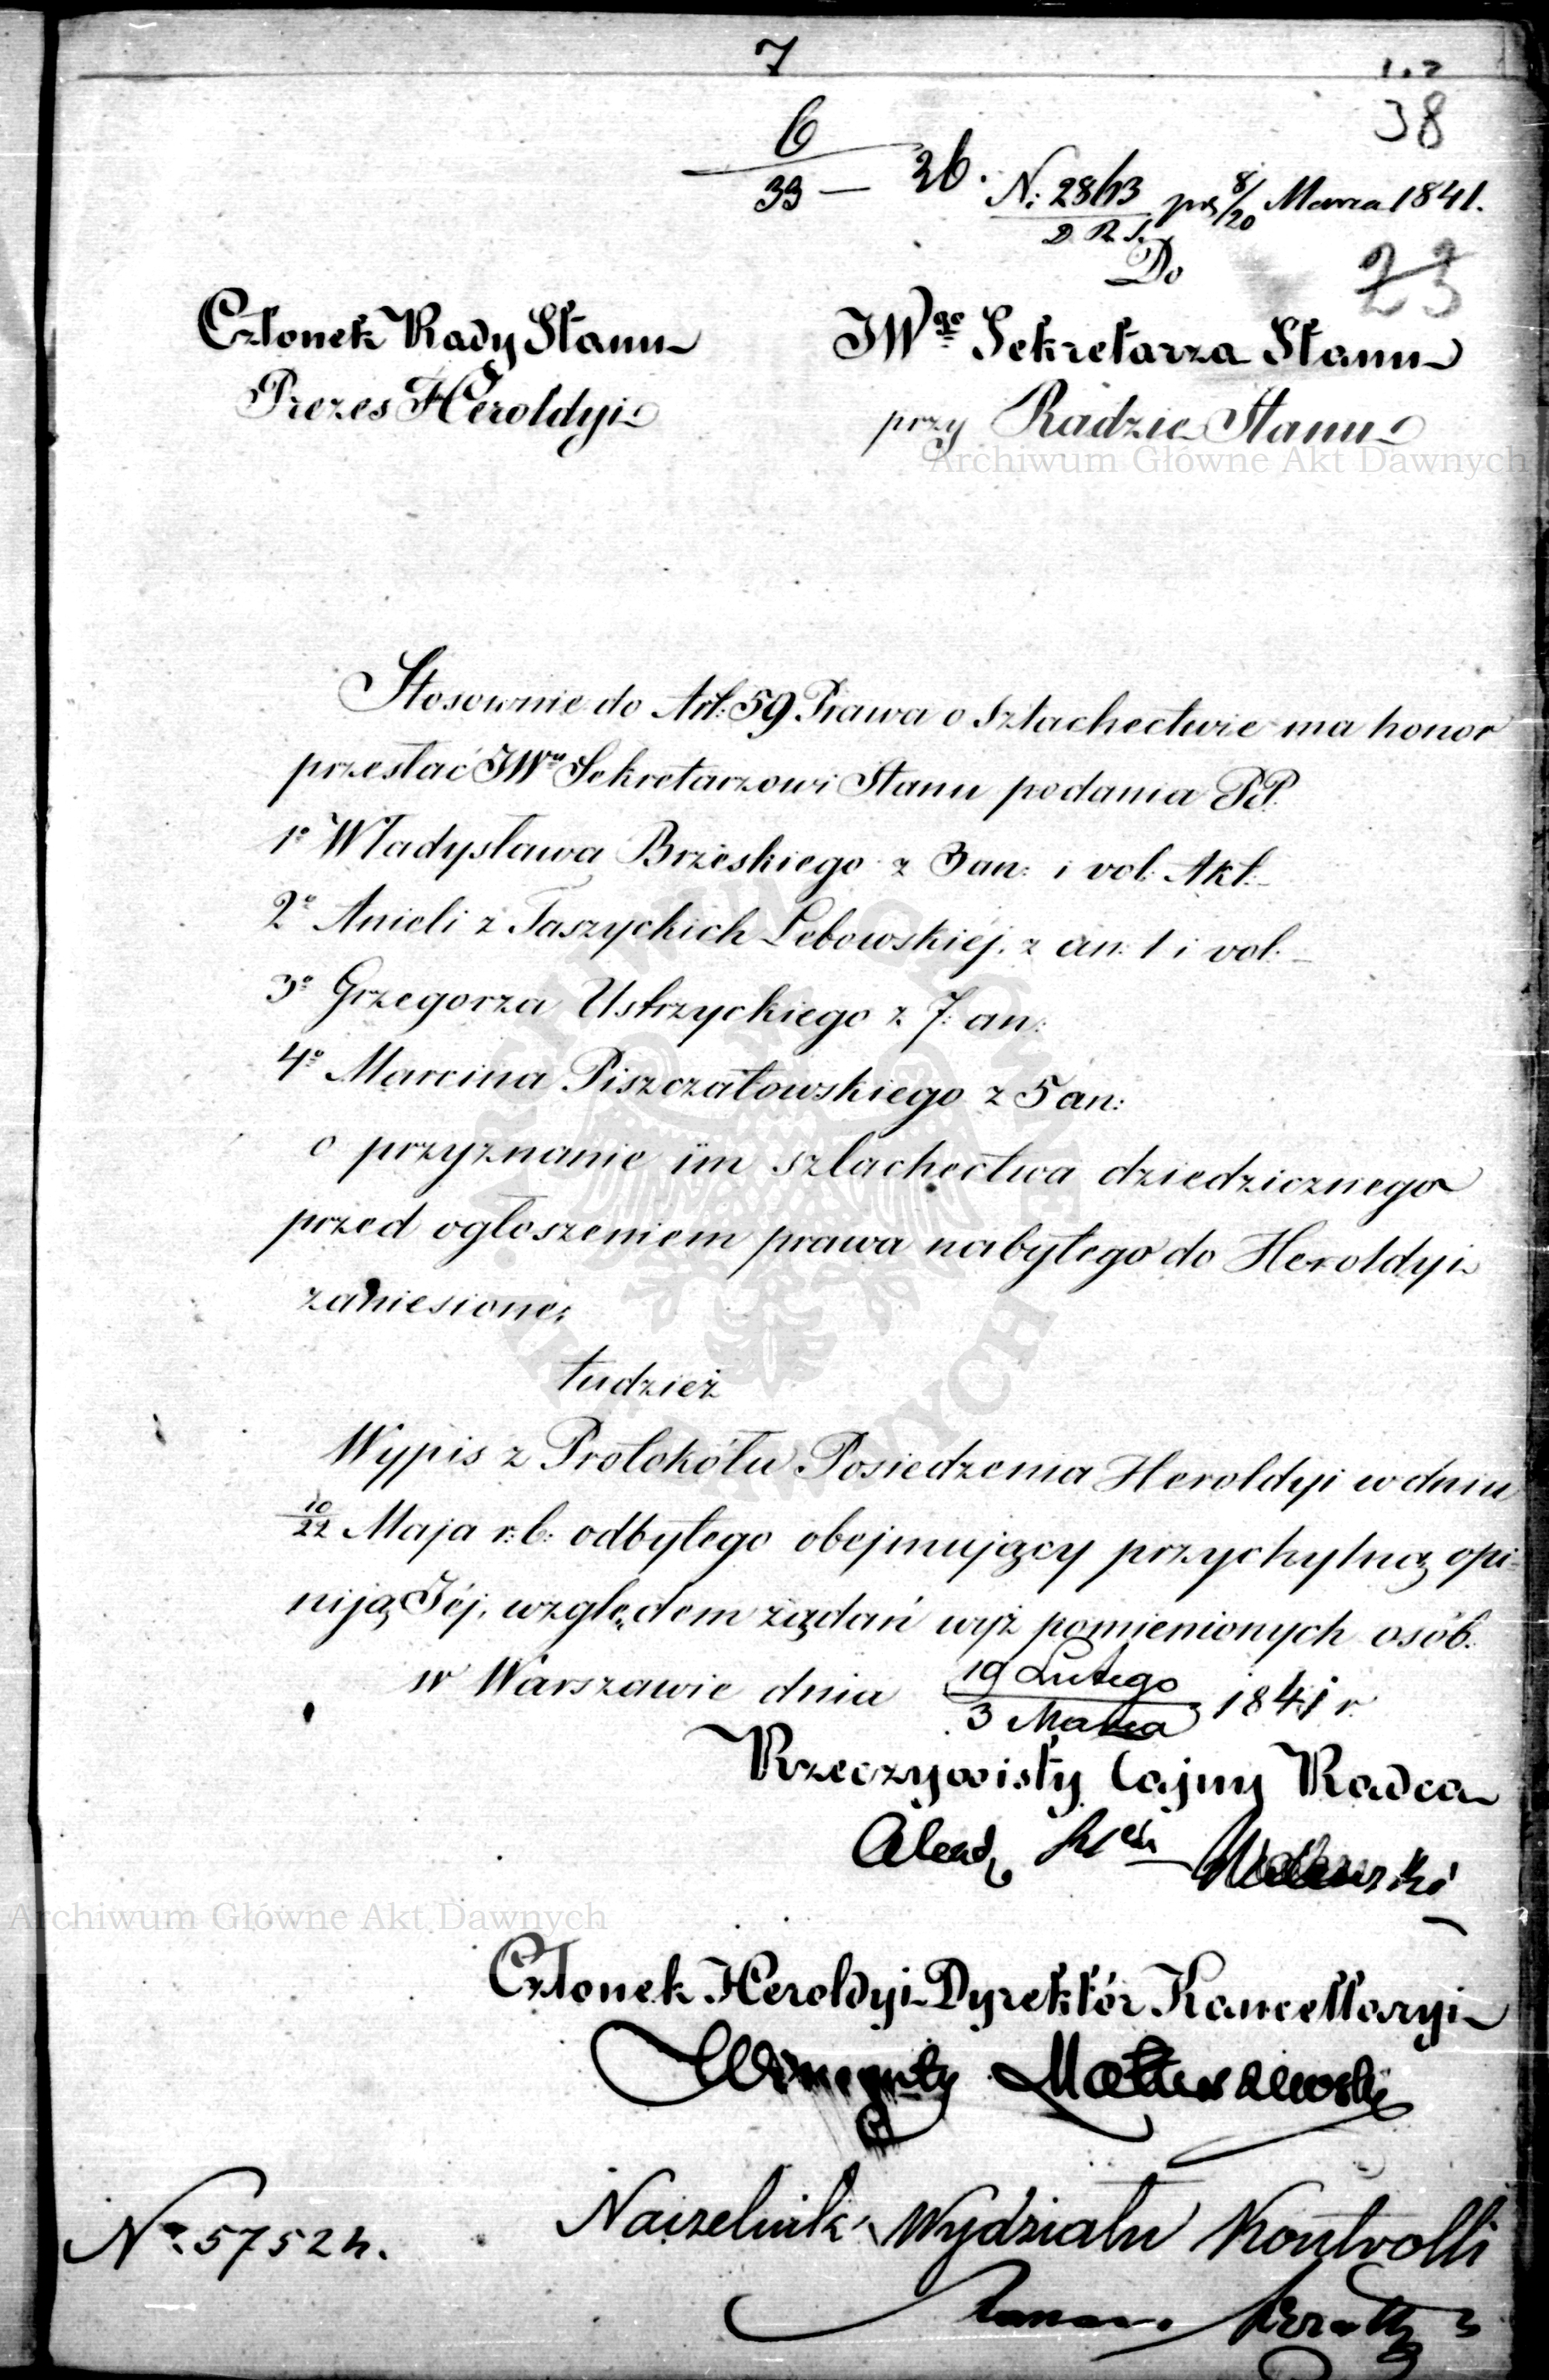 7
38
6
33 — 26. N: 2863 prs 8/20 Marca 1841.
D. R. S.
Do
23
Członek Rady Stanu
JWgo Sekretarza Stanu
Prezes Heroldyi
przy Radzie Stanu
Archiwum Główne Akt Dawnych
Stosownie do Art: 59 Prawa o Szlachectwie ma honor
przesłać JWu Sekretarzowi Stanu podania PP.
1º Władysława Brzeskiego z 3 an: i vol: Akt:
2º Anieli z Taszyckich Łebowskiéj, z an: 1 i vol:
3º Grzegorza Ustrzyckiego z 7: an:
4º Marcina Piszczatowskiego z 5 an:
o przyznanie im szlachectwa dziedzicznego
przed ogłoszeniem prawa nabytego do Heroldyi
zaniesione,
tudzież
Wypis z Protokółu Posiedzenia Heroldyi w dniu
10/22 Maja r: b: odbytego obejmujący przychylną opi-
niją Jéj, względem żądań wyż pomienionych osób.
w Warszawie dnia 19 Lutego / 3 Marca 1841 r.
Rzeczywisty Tajny Radca
Alexd.
Archiwum Główne Akt Dawnych
Członek Heroldyi Dyrektór Kancellaryi
Wincenty Matuszewski
Naczelnik Wydziału Kontrolli
Nº. 57524.
ARCHIWUM GŁÓWNE AKT DAWNYCH